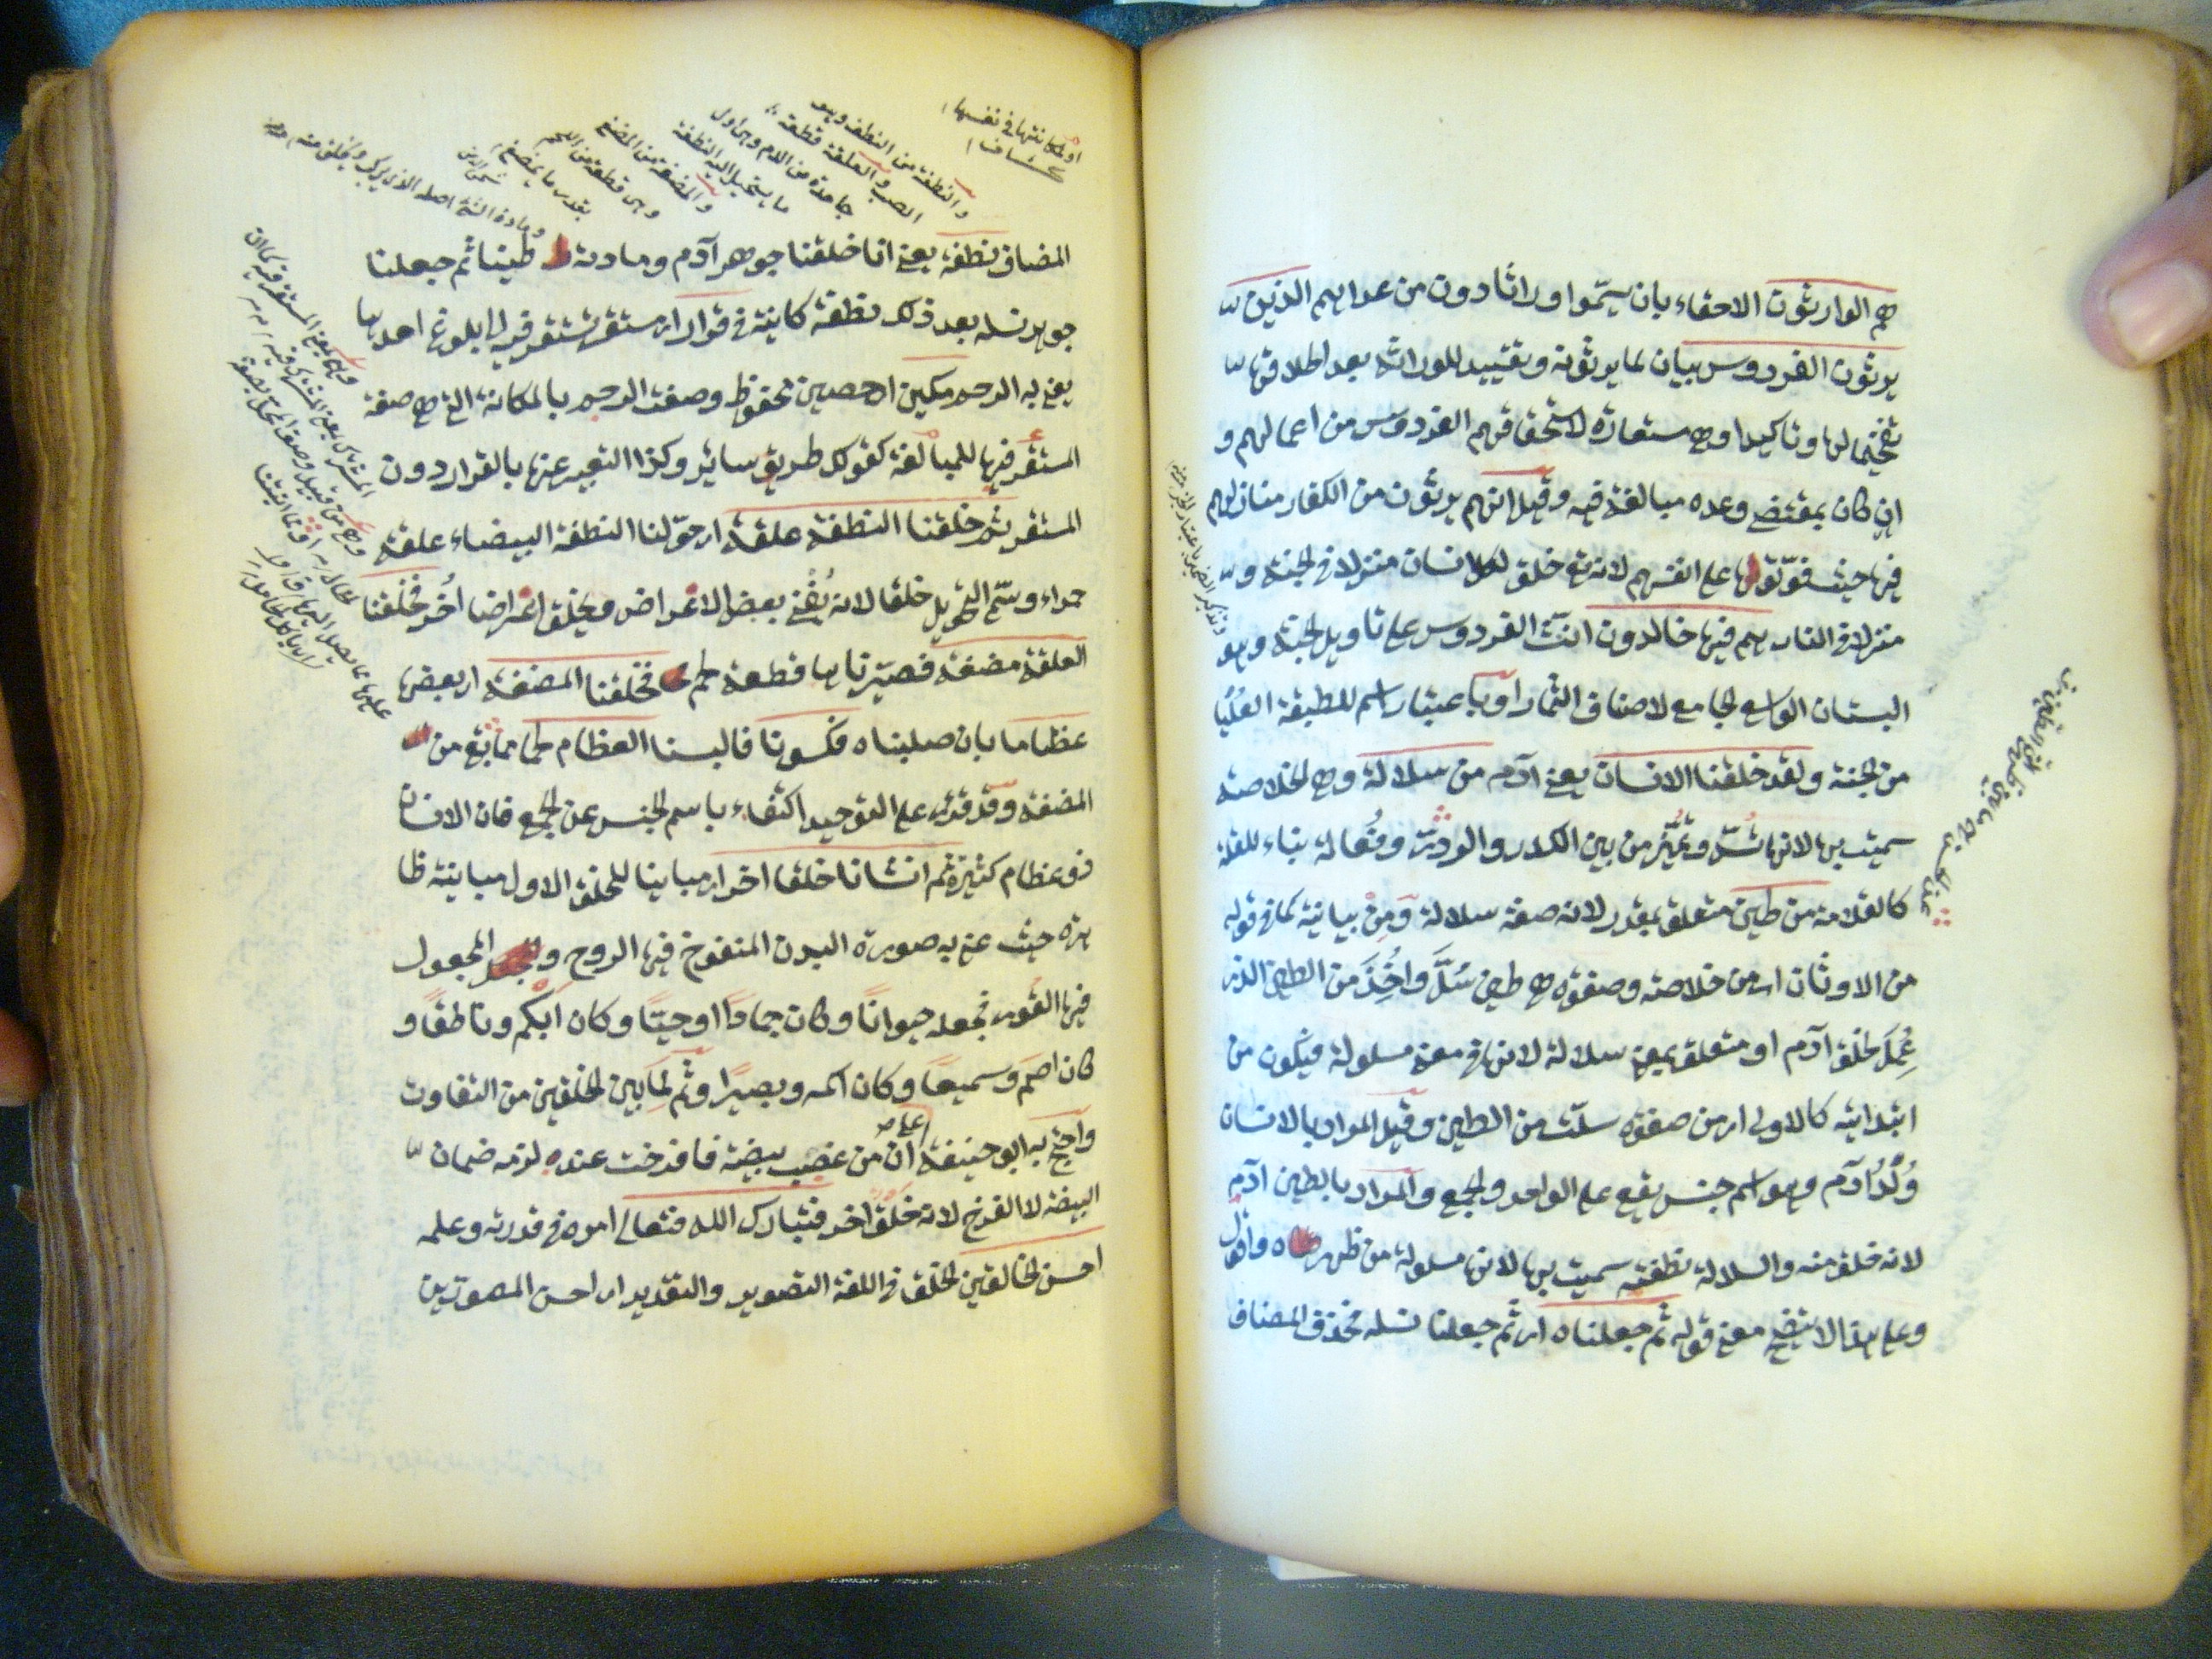 هم الوارثون الاحقاء بان يسمّوا وراثا دون من عداهم الذين
يرثون الفردوس بيان لما يرثونه وتقييد للوراثة بعد اطلاقها
تفخيما لها وتاكيدا وهى مستعارة لاستحقاقهم الفردوس من اعمالهم و
ان كان بمقتضى وعده مبالغة فيه وقيل انهم يرثون من الكفار منازلهم
فيها حيث فوّتوها على انفسهم لانه تع خلق لكل انسان منزلا فى الجنة و
منزلا فى النار هم فيها خالدون انّث الفردوس على تاويل الجنة وهو
البستان الواسع الجامع لاصناف الثمار او باعتبار اسم للطبقة العُليا
من الجنة ولقد خلقنا الانسان يعنى آدم من سلالة وهى الخلاصة
سميت بها لانها تُسَلّ وتُميّز من بين الكدر وفُعالة بناء للقلة
كالقلامة من طين متعلق بمقدر لانه صفة سلالة ومِنْ بيانية كما فى قوله
من الاوثان اى من خلاصة وصفوة هى طين سُلَّ واُخِذَ من الطين الذى
عُمِلَ لخلق آدم او متعلق بمعنى سلالة لانها فى معنى مسلولة فيكون من
ابتدائية كالاولى اى من صفوة سلّت من الطين وقيل المراد بالانسان
وُلْدُ آدم وهو اسم جنس يقع على الواحد والجمع والمراد بالطين آدم
لانه خلق منه والسلالة نطفته سميت بها لانها مسلولة من ظهره واقول
وعلى هذا لا يتضح معنى قوله ثم جعلناه اى ثم جعلنا نسله فحذف المضاف
او لمكانتها فى نفسها
كشاف
والنطفة من النطف وهو
الصب والعلقة قطعة
جامدة من الدم وهى اول
ما يستحيل اليه النطفة
والمضغة من المضغ
وهى قطعة من اللحم
بقدر ما يمضغ
المضاف نطفة يعنى انا خلقنا جوهر آدم ومادته طينا ثم جعلنا
جوهر نسله بعد ذلك نطفة كاينة فى قرار اى مستقر تستقر فيه الى بلوغ امدها
يعنى به الرحم مكين اى حصين محفوظ وصفت الرحم بالمكانة التى هى صفة
المستقر فيها للمبالغة كقولك طريق سائر وكذا التعبير عنها بالقرار دون
المستقر ثم خلقنا النطفة علقة اى حوّلنا النطفة البيضاء علقة
حمراء وسمّى التحويل خلقا لانه يُفْنى بعض الاعراض ويخلق اعراضا اُخَر فخلقنا
العلقة مضغة فصيّرناها قطعة لحم فخلقنا المضغة اى بعضها
عظاما بان صلبناه فكسونا فالبسنا العظام لحما مما بقى من
المضغة وقد قرئ على التوحيد اكتفاء باسم الجنس عن الجمع فان الانسان
ذو عظام كثيرة ثم انشاناه خلقا اخر اى مباينا للخلق الاول مباينة ظا
هرة حيث عنى به صورة البدن المنفوخ فيها الروح و المجعول
فيها القوى فجعله حيوانًا وكان جمادًا او حيًّا وكان ابكم وناطقًا و
كان اصم وسميعًا وكان اكمه وبصيرًا وثم لِمَا بين الخلقين من التفاوت
واحتج به ابو حنيفة على ان من غصب بيضة فافرخت عنده لزمه ضمان
البيضة لا الفرخ لانه خلق اخر فتبارك الله فتعالى امره فى قدرته وعلمه
احسن الخالقين الخلق فى اللغة التصوير والتقدير اى احسن المصورين